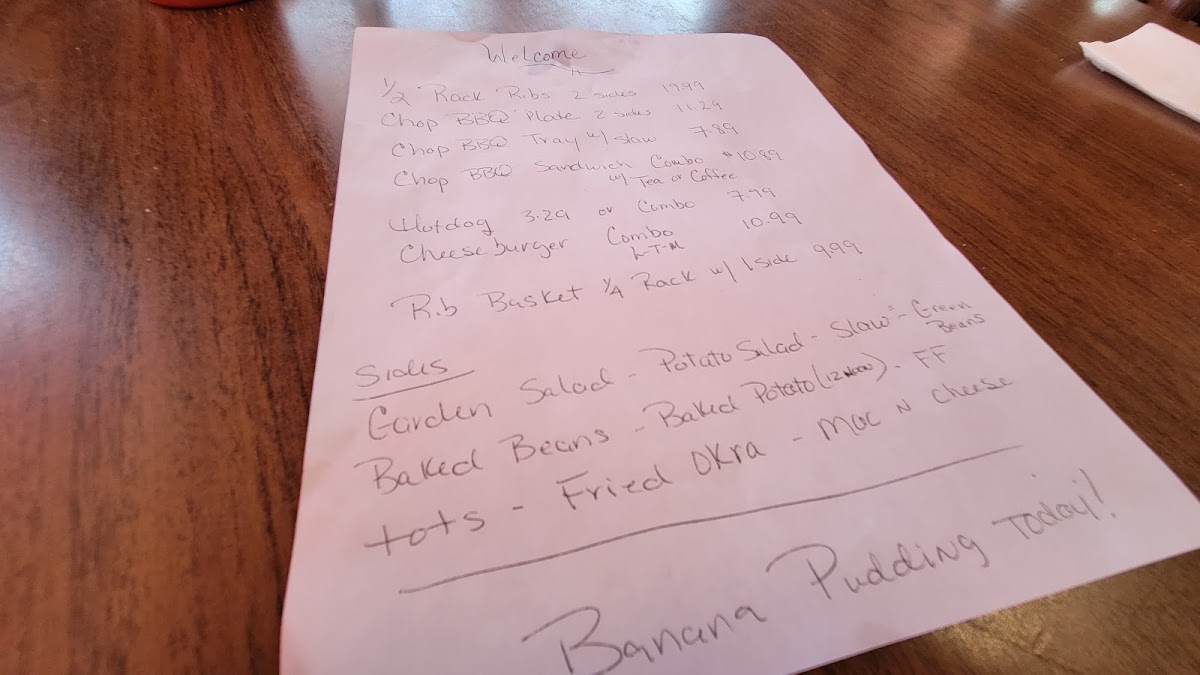 Welcome
1/2 Rack Ribs 2 sides 1999
Chop BBQ Plate 2 sides 11.29
Chop BBQ Tray w/ slaw 7.89
Chop BBQ Sandwich Combo $10.89
w/ Tea or Coffee
Hotdog 3.29 or Combo 7.99
Cheeseburger Combo 10.99
L-T-M
Rib Basket 1/4 Rack w/ 1 side 999
Sides
Garden Salad - Potato Salad - Slaw - Green
Beans
Baked Beans - Baked Potato (12 Noon) - FF
tots - Fried OKra - Mac N Cheese
Banana Pudding Today!